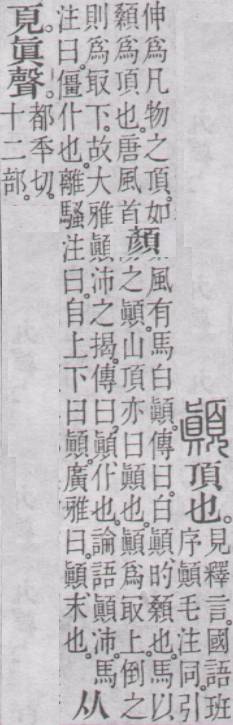 顚頂也。
見釋言。國語班
序顚毛注同。引
伸爲凡物之頂。如風有馬白顚。傳曰。白顚的顙也。馬以
顙爲頂也。唐風首之顚。山頂亦曰顚也。顚爲取上。倒之
顏
則爲取下。故大雅顚沛之揭。傳曰。顚仆也。論語顚沛馬
注曰。僵仆也。離騷注曰。自上下曰顚。廣雅曰。顚末也。
从
頁眞聲。
都秊切。
十二部。